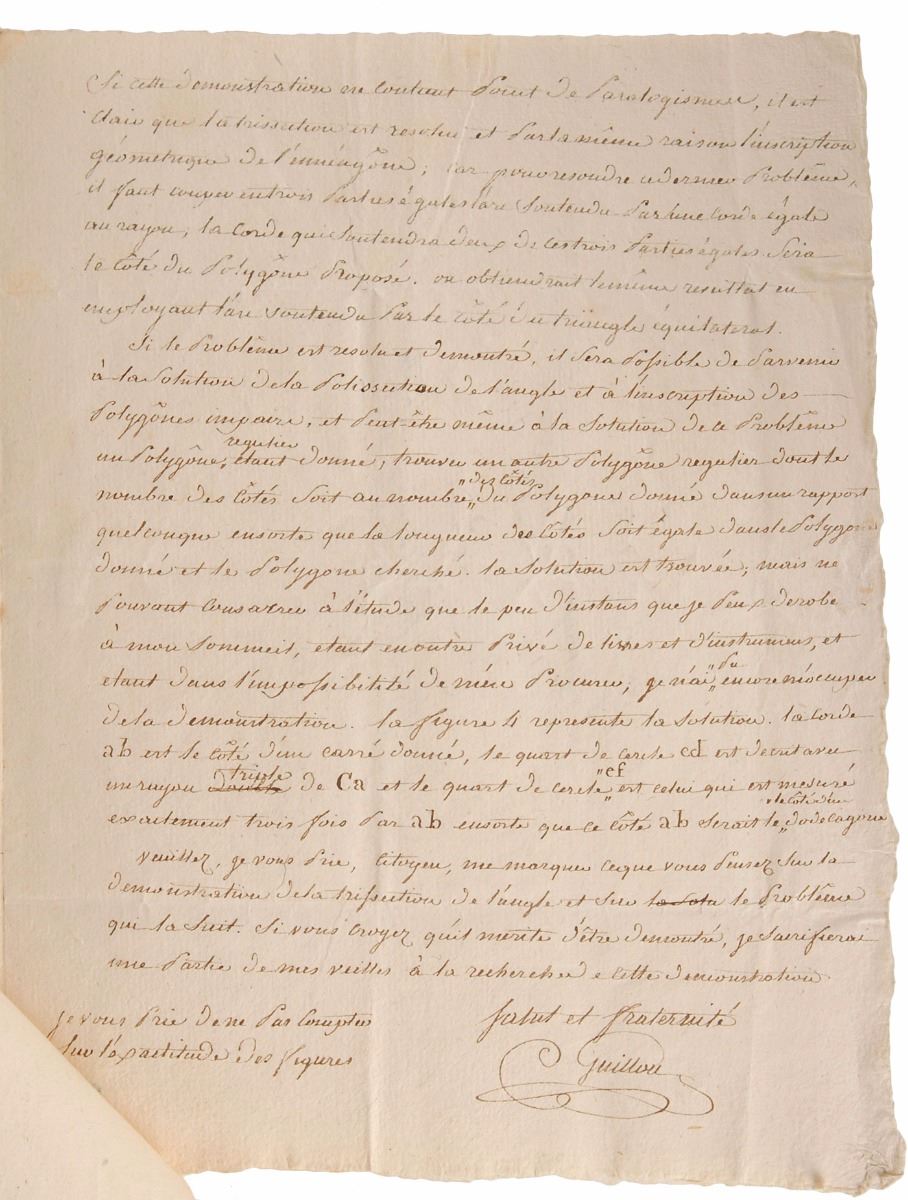 Si cette démonstration ne contient Point de Paralogismes, il est
clair que la trissection est resolue et Par la même raison l'inscription
géometrique de l'ennéagône; car pour resoudre ce dernier Problême,
il faut couper en trois Parties égales l'arc soutendu Par une corde égale
au rayon; la corde qui soutendra deux de ces trois Parties égales sera
le côté du Polygône Proposé. on obtiendrait le même resultat en
employant l'arc soutendu Par le côté du triangle équilateral.
Si le Problême est resolu et demontré, il sera Possible de Parvenir
à la solution de la Polissection de l'angle et à l'inscription des
Polygônes impairs, et Peut-être même à la solution de ce Problême
un Polygône, regulier étant donné, trouver un autre Polygône regulier dont le
nombre des Côtés soit au nombre "des côtés du Polygone donné dans un rapport
quelconque ensorte que la longueur des côtés soit égale dans le Polygone
donné et le Polygone cherché. la solution est trouvée; mais ne
Pouvant consacrer à l'étude que le peu d'instans que je Peux derober
à mon sommeil, etant en outre Privé de livres et d'instrumens, et
etant dans l'impossibilité de m'en Procurer, je n'ai "pu encore m'occuper
de la demonstration. la figure 4 represente la solution. la corde
ab est le côté d'un carré donné, le quart de cercle cd est decrit avec
un rayon double triple de Ca et le quart de cercle "ef est celui qui est mesuré
exactement trois fois Par ab ensorte que ce côté ab serait le "le côté d'un dodecagone
veuillez, je vous Prie, Citoyen, me marquer ceque vous Pensez sur la
demonstration de la trissection de l'angle et sur la solu le Problême
qui la suit. Si vous croyez qu'il merite d'être demontré, je sacrifierai
une Partie de mes veilles à la recherche de cette demonstration.
Salut et fraternité
Guillou
Je vous Prie de ne Pas Compter
sur l'exactitude des figures